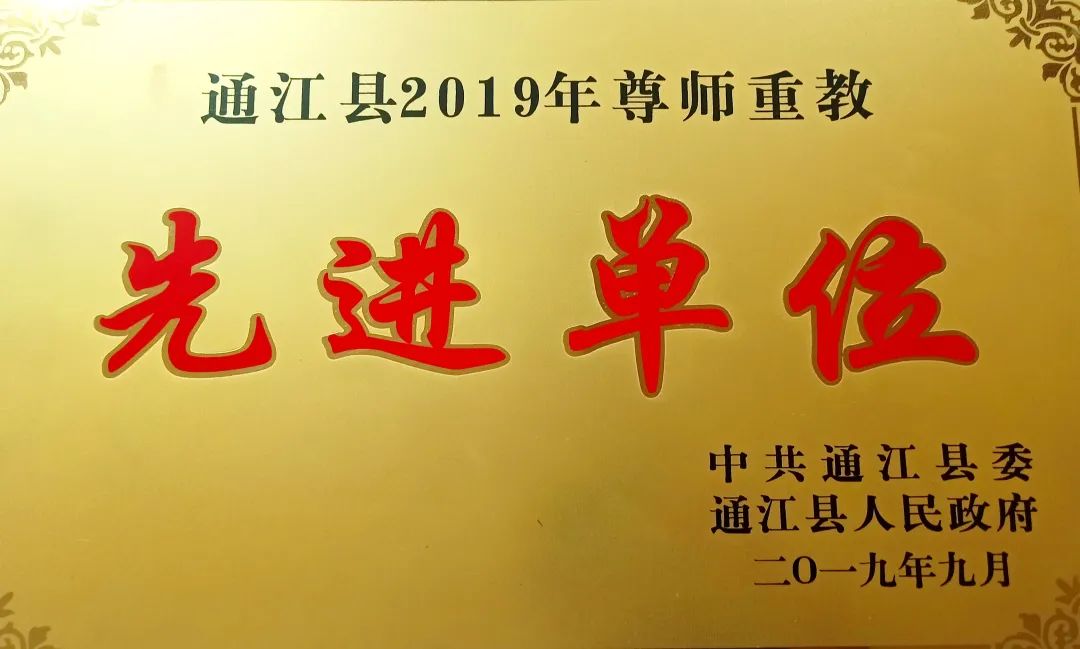 通江县2019年尊师重教
先进单位
中共通江县委
通江县人民政府
二O一九年九月